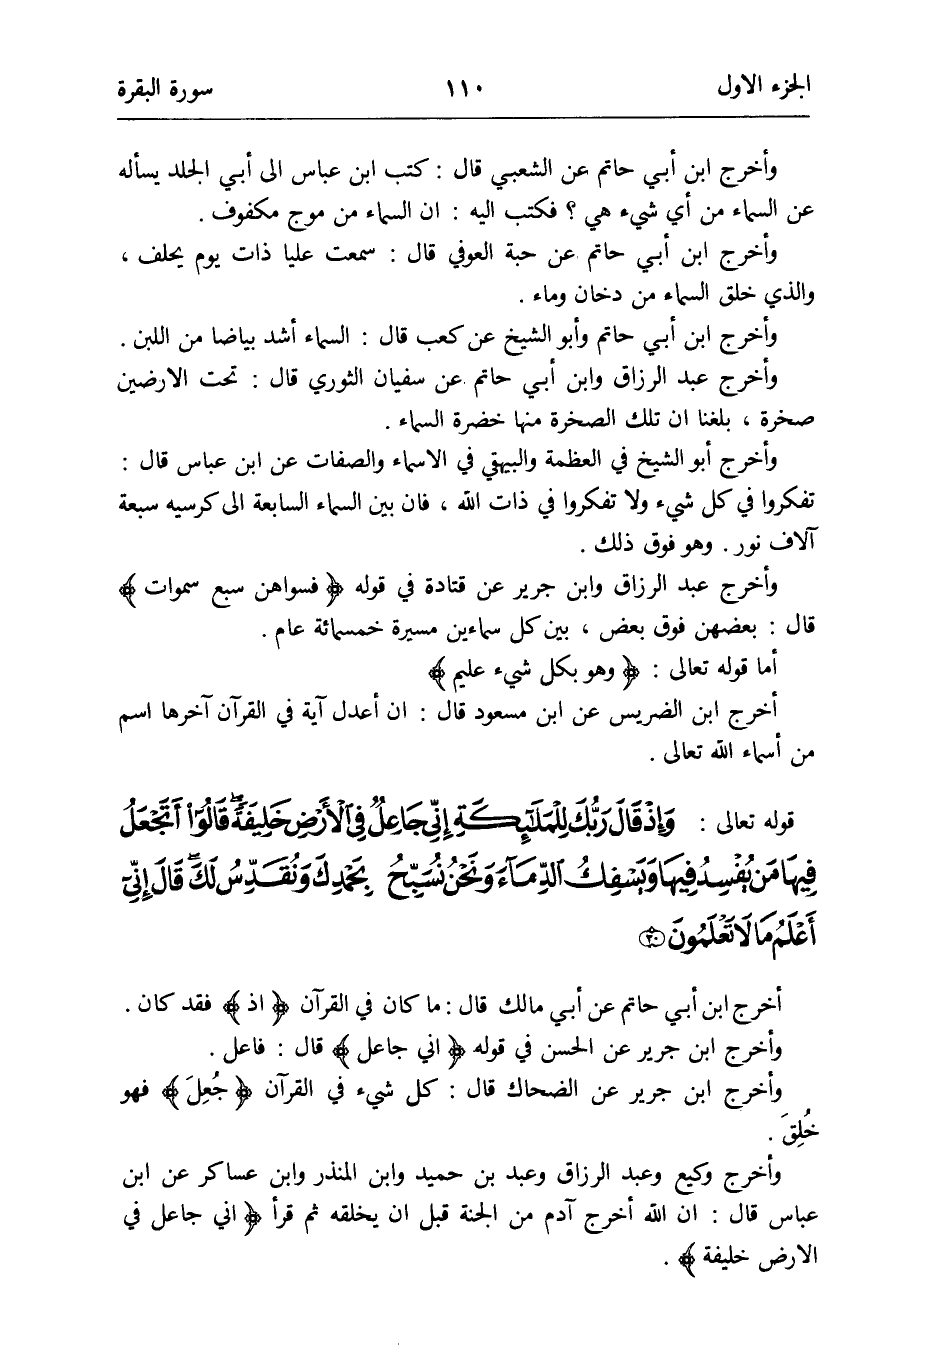 الجزء الاول ١١٠ سورة البقرة
وأخرج ابن أبي حاتم عن الشعبي قال : كتب ابن عباس الى أبي الجلد يسأله
عن السماء من أي شيء هي ؟ فكتب اليه : ان السماء من موج مكفوف .
وأخرج ابن أبي حاتم عن حبة العوفي قال : سمعت عليا ذات يوم يحلف ،
والذي خلق السماء من دخان وماء .
وأخرج ابن أبي حاتم وأبو الشيخ عن كعب قال : السماء أشد بياضا من اللبن .
وأخرج عبد الرزاق وابن أبي حاتم عن سفيان الثوري قال : تحت الارضين
صخرة ، بلغنا ان تلك الصخرة منها خضرة السماء .
وأخرج أبو الشيخ في العظمة والبيهقي في الاسماء والصفات عن ابن عباس قال :
تفكروا في كل شيء ولا تفكروا في ذات الله ، فان بين السماء السابعة الى كرسيه سبعة
آلاف نور . وهو فوق ذلك .
وأخرج عبد الرزاق وابن جرير عن قتادة في قوله ﴿ فسواهن سبع سموات ﴾
قال : بعضهن فوق بعض ، بين كل سماءين مسيرة خمسمائة عام .
أما قوله تعالى : ﴿ وهو بكل شيء عليم ﴾
أخرج ابن الضريس عن ابن مسعود قال : ان أعدل آية في القرآن آخرها اسم
من أسماء الله تعالى .
قوله تعالى : وَإِذْ قَالَ رَبُّكَ لِلْمَلَٰٓئِكَةِ إِنِّى جَاعِلٌ فِى ٱلْأَرْضِ خَلِيفَةً ۖ قَالُوٓا۟ أَتَجْعَلُ
فِيهَا مَن يُفْسِدُ فِيهَا وَيَسْفِكُ ٱلدِّمَآءَ وَنَحْنُ نُسَبِّحُ بِحَمْدِكَ وَنُقَدِّسُ لَكَ ۖ قَالَ إِنِّىٓ
أَعْلَمُ مَا لَا تَعْلَمُونَ ٣٠
أخرج ابن أبي حاتم عن أبي مالك قال : ما كان في القرآن ﴿ اذ ﴾ فقد كان .
وأخرج ابن جرير عن الحسن في قوله ﴿ اني جاعل ﴾ قال : فاعل .
وأخرج ابن جرير عن الضحاك قال : كل شيء في القرآن ﴿ جُعِلَ ﴾ فهو
خُلِقَ .
وأخرج وكيع وعبد الرزاق وعبد بن حميد وابن المنذر وابن عساكر عن ابن
عباس قال : ان الله أخرج آدم من الجنة قبل ان يخلقه ثم قرأ ﴿ اني جاعل في
الارض خليفة ﴾ .